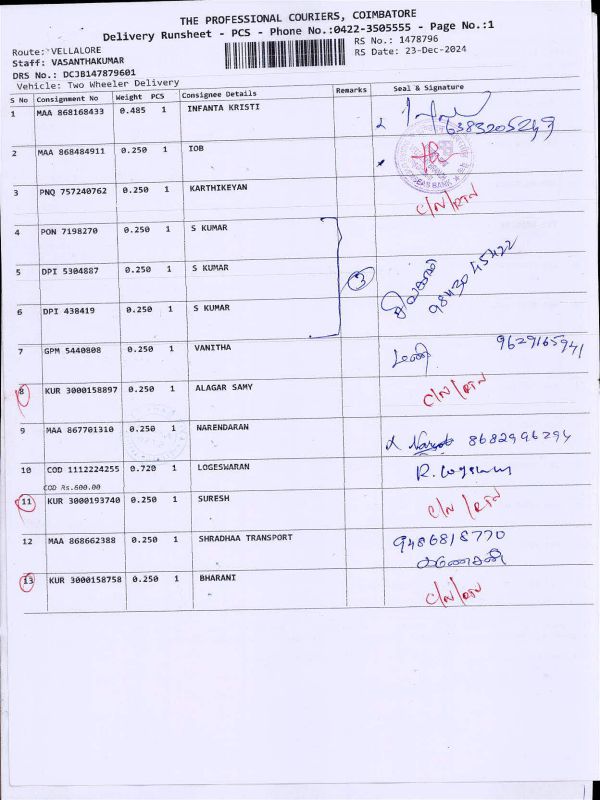 THE PROFESSIONAL COURIERS, COIMBATORE
Delivery Runsheet - PCS - Phone No.:0422-3505555 - Page No.:1
Route: VELLALORE
RS No.: 1478796
Staff: VASANTHAKUMAR
RS Date: 23-Dec-2024
DRS No.: DCJB147879601
Vehicle: Two Wheeler Delivery
S No Consignment No Weight PCS Consignee Details Remarks Seal & Signature
1 MAA 868168433 0.485 1 INFANTA KRISTI 6383205249
2 MAA 868484911 0.250 1 IOB
3 PNQ 757240762 0.250 1 KARTHIKEYAN C/N/RTN
4 PON 7198270 0.250 1 S KUMAR
5 DPI 5304887 0.250 1 S KUMAR 3 98430 45422
6 DPI 438419 0.250 1 S KUMAR
7 GPM 5440808 0.250 1 VANITHA மணி 9629165941
8 KUR 3000158897 0.250 1 ALAGAR SAMY C/N/RTN
9 MAA 867701310 0.250 1 NARENDARAN 8682996294
10 COD 1112224255 0.720 1 LOGESWARAN
COD Rs.600.00
11 KUR 3000193740 0.250 1 SURESH C/N/RTN
12 MAA 868662388 0.250 1 SHRADHAA TRANSPORT 9486818770
கணேசன்
13 KUR 3000158758 0.250 1 BHARANI C/N/RTN